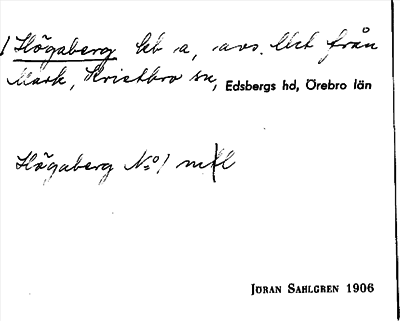 Högaberg hd a, avs. Utt från
Mark, Kristbro sn, Edsbergs hd, Örebro län
Högaberg No 1 mtl
JÖRAN SAHLGREN 1906